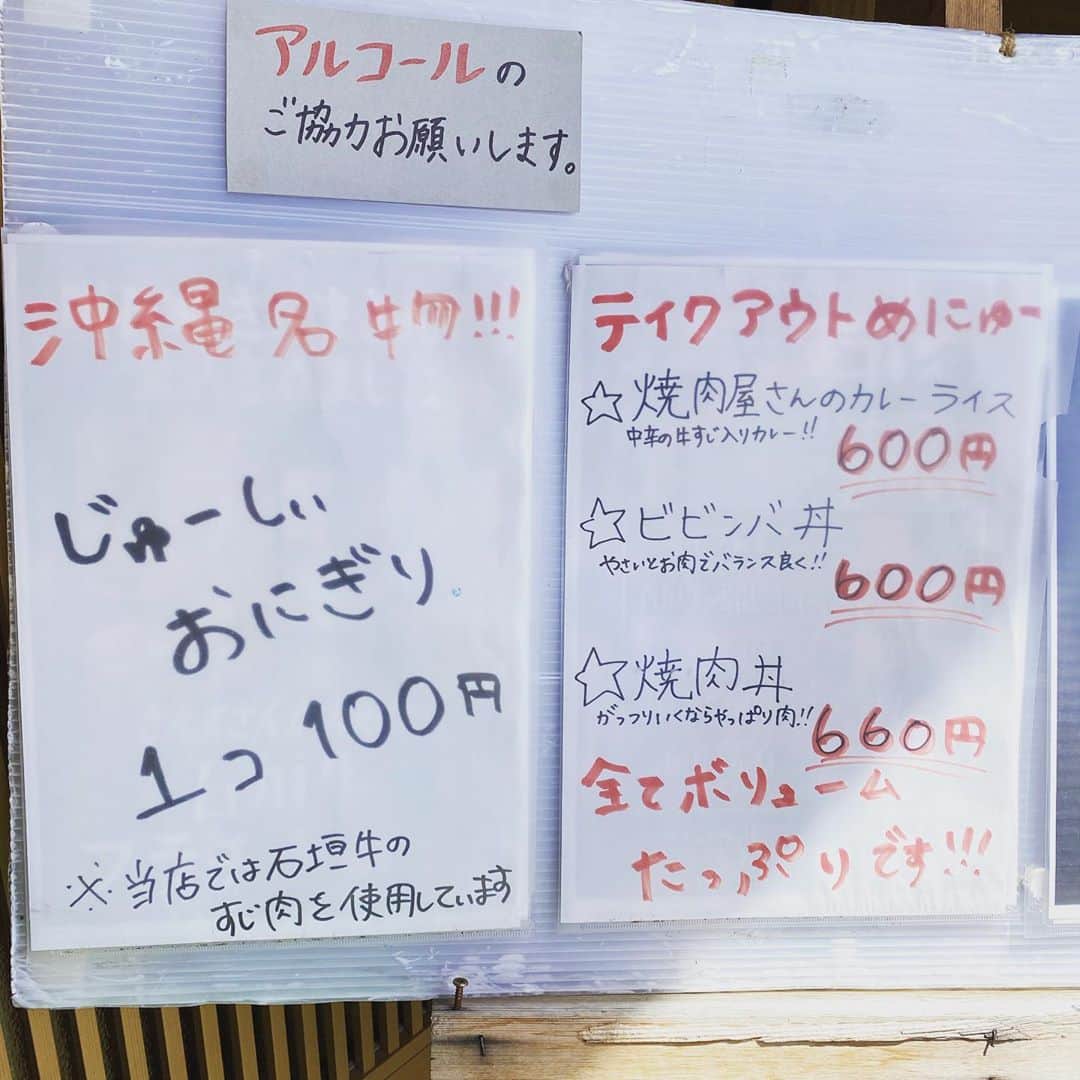 アルコールの
ご協力お願いします。
沖縄名物!!!
じゅーしぃ
おにぎり
1コ 100円
※当店では石垣牛の
すじ肉を使用しています
テイクアウトめにゅー
☆焼肉屋さんのカレーライス
中辛の牛すじ入りカレー!!
600円
☆ビビンバ丼
やさいとお肉でバランス良く!!
600円
☆焼肉丼
がっつりいくならやっぱり肉!!
660円
全てボリューム
たっぷりです!!!